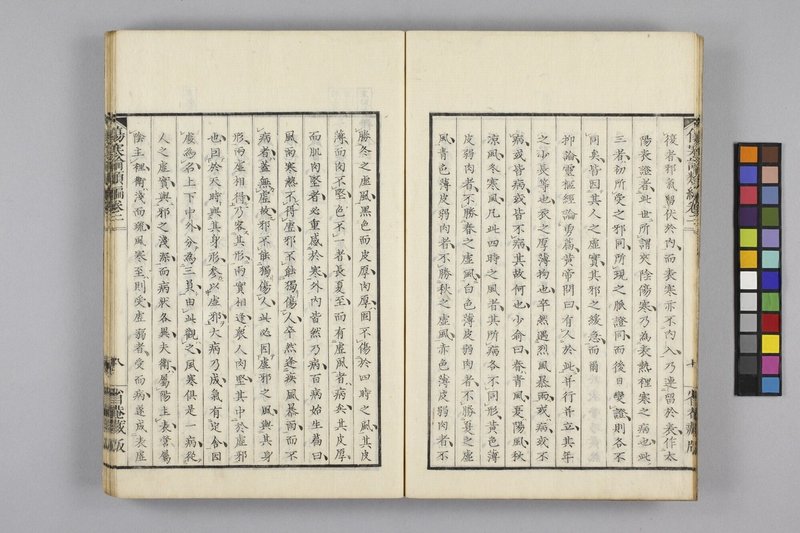 後者邪氣留伏於內而表寒亦不內入乃連留於表作太
陽表證者此世所謂寒陰傷寒乃為表熱裡寒之病也此
三者初所受之邪同所現之脈證同而後日變證則各不
同矣皆因其人之虛實其邪之緩急而爾
抑論靈樞經論勇篇黃帝問曰有人於此并行并立其年
之少長等也衣之厚薄均也卒然遇烈風暴雨或病或不
病或皆病或皆不病其故何也少俞曰春青風夏陽風秋
涼風冬寒風凡此四時之風者其所病各不同形黃色薄
皮弱肉者不勝春之虛風白色薄皮弱肉者不勝夏之虛
風青色薄皮弱肉者不勝秋之虛風赤色薄皮弱肉者不
七
省菴藏版
傷寒論類編卷二
勝冬之虛風黑色而皮厚肉厚固不傷於四時之風其皮
薄而肉不堅色不一者長夏至而有虛風者病矣其皮厚
而肌肉堅者必重感於寒外內皆然乃病百病始生篇曰
風雨寒熱不得虛邪不能獨傷人卒然逢疾風暴雨而不
病者蓋無虛故邪不能獨傷人此必因虛邪之風與其身
形兩虛相得乃客其形兩實相逢眾人肉堅其中於虛邪
也因於天時與其身形參以虛邪大病乃成氣有定舍因
處為名上下中外分為三員由此觀之風寒俱是一病從
人之虛實與邪之淺深而病狀各異夫衛屬陽主表營屬
陰主裡衛淺而疏風寒至則受虛弱者受而病遂成表虛
傷寒論類編卷二
八
省菴藏版